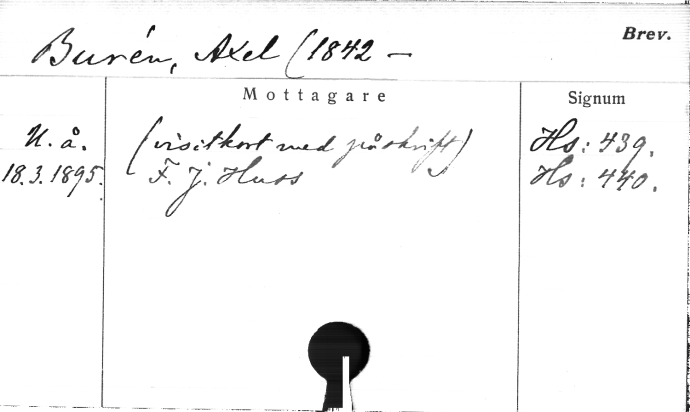 Brev.
Burén, Axel (1842 –
Mottagare
Signum
U. å. (visitkort med påskrift) Hs: 439.
18.3.1895. F. J. Huss Hs: 440.